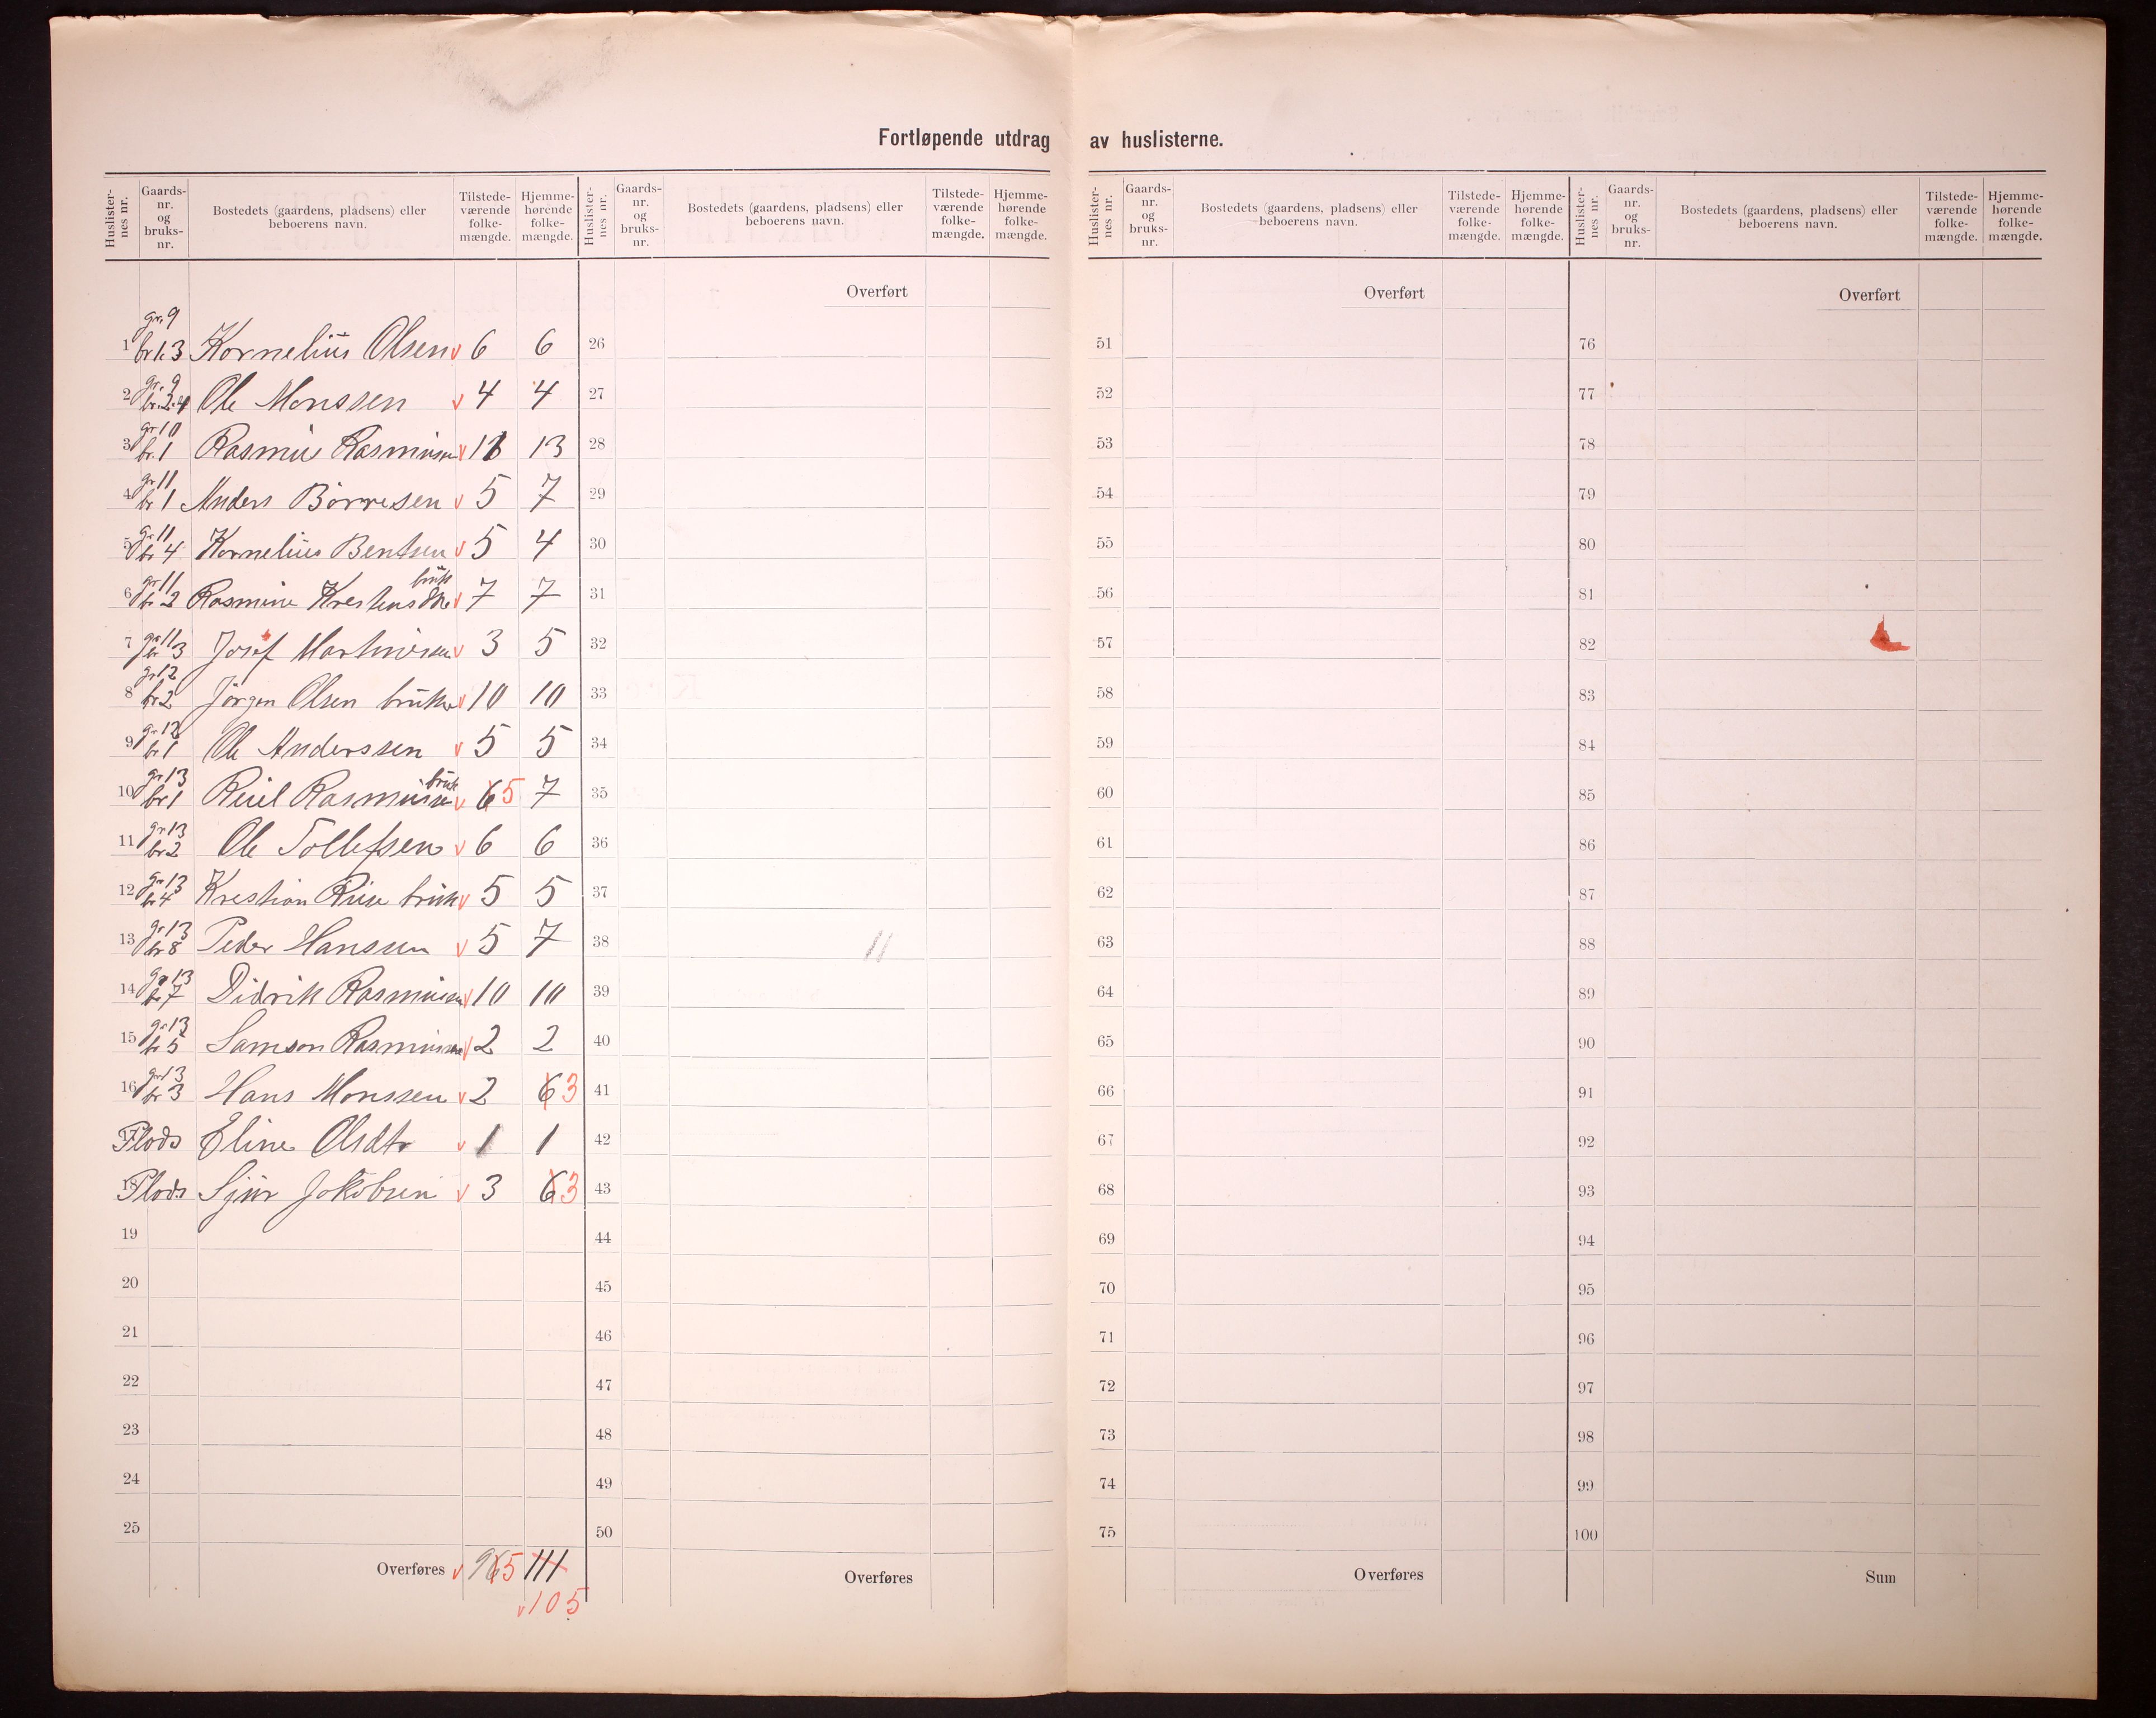 Fortløpende utdrag av huslisterne.
Huslisternes nr. Gaards-nr. og bruks-nr. Bostedets (gaardens, pladsens) eller beboerens navn. Tilstede-værende folke-mængde. Hjemme-hørende folke-mængde.
Huslisternes nr. Gaards-nr. og bruks-nr. Bostedets (gaardens, pladsens) eller beboerens navn. Tilstede-værende folke-mængde. Hjemme-hørende folke-mængde.
Huslisternes nr. Gaards-nr. og bruks-nr. Bostedets (gaardens, pladsens) eller beboerens navn. Tilstede-værende folke-mængde. Hjemme-hørende folke-mængde.
Huslisternes nr. Gaards-nr. og bruks-nr. Bostedets (gaardens, pladsens) eller beboerens navn. Tilstede-værende folke-mængde. Hjemme-hørende folke-mængde.
Overført Overført Overført
1 gr. 9 br 1. 3 Kornelius Olsen v 6 6 26 51 76
2 gr. 9 br. 2. 4 Ole Monssen v 4 4 27 52 77
3 gr 10 br. 1 Rasmus Rasmussen v 11 13 28 53 78
4 gr 11 br 1 Anders Börresen v 5 7 29 54 79
5 gr 11 br 4 Kornelius Bentsen v 5 4 30 55 80
6 gr 11 br 2 Rasmine bruk v 7 7 31 56 81
7 gr 11 br 3 Josef v 3 5 32 57 82
8 gr 12 br 2 Jörgen Olsen bruk v 10 10 33 58 83
9 gr 12 br 1 Ole Anderssen v 5 5 34 59 84
10 gr 13 br 1 Rasmussen bruk v 6 5 7 35 60 85
11 gr 13 br 2 Ole Tollefsen v 6 6 36 61 86
12 gr 13 br 4 Krestian bruk v 5 5 37 62 87
13 gr 13 br 8 Peder Hanssen v 5 7 38 63 88
14 gr 13 br 7 Didrik Rasmussen v 10 10 39 64 89
15 gr 13 br 5 Samson Rasmussen v 2 2 40 65 90
16 gr 13 br 3 Hans Monssen v 2 6 3 41 66 91
17 Plads Eline Olsdtr v 1 1 42 67 92
18 Plads Sjur Jakobsen v 3 6 3 43 68 93
19 44 69 94
20 45 70 95
21 46 71 96
22 47 72 97
23 48 73 98
24 49 74 99
25 50 75 100
Overføres v 96 5 111 Overføres Overføres Sum
v 105